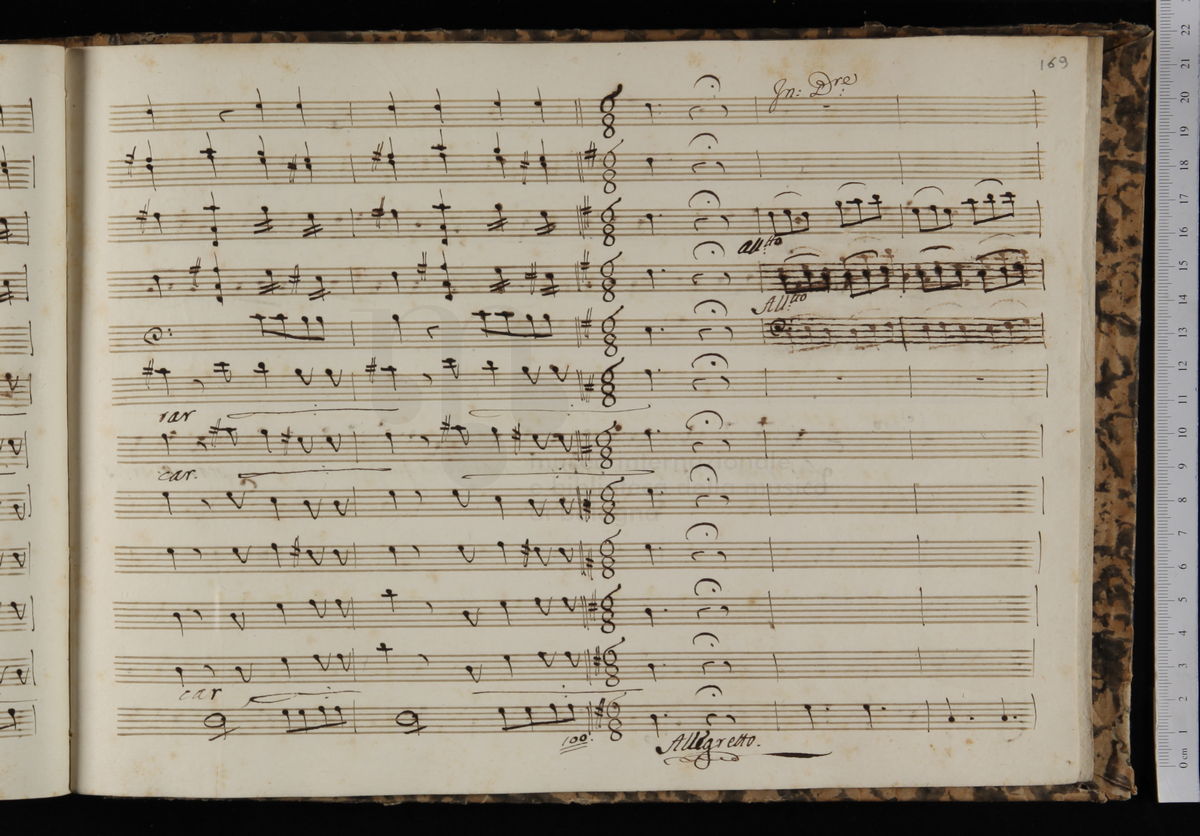 169
In: Dre
all.tto
All.tto
car
car.
car
100.
Allegretto.
22
21
20
19
18
17
16
15
14
13
12
11
10
9
8
7
6
5
4
3
2
1
0 cm